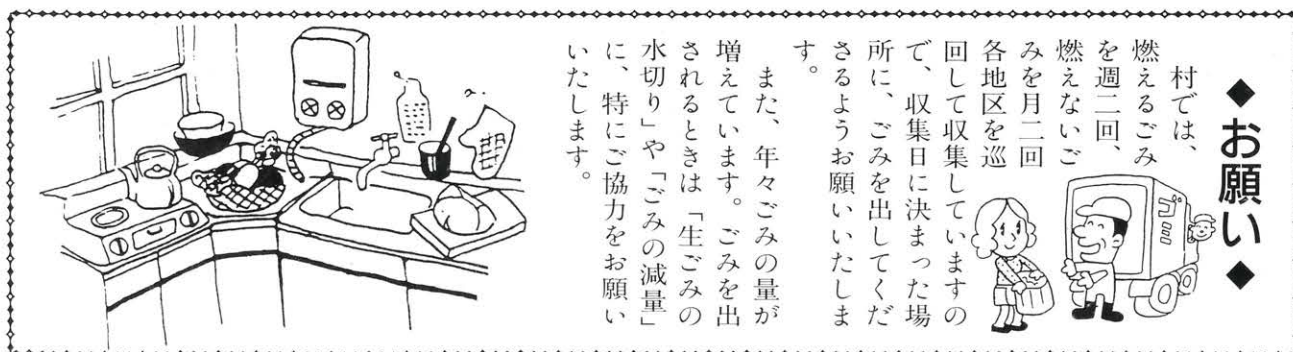 ◆お願い◆
村では、
燃えるごみ
を週二回、
燃えないご
みを月二回
各地区を巡
回して収集していますの
で、収集日に決まった場
所に、ごみを出してくだ
さるようお願いいたしま
す。
また、年々ごみの量が
増えています。ごみを出
されるときは「生ごみの
水切り」や「ごみの減量」
に、特にご協力をお願い
いたします。
ゴミ